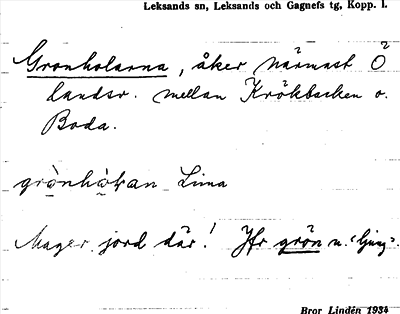 Leksands sn, Leksands och Gagnefs tg, Kopp. l.
Gronholarna, åker närmast Ö
landsv. mellan Krökbacken o.
Boda.
Lima
Mager jord där! Jfr grön n. "ljung".
Bror Lindén 1934